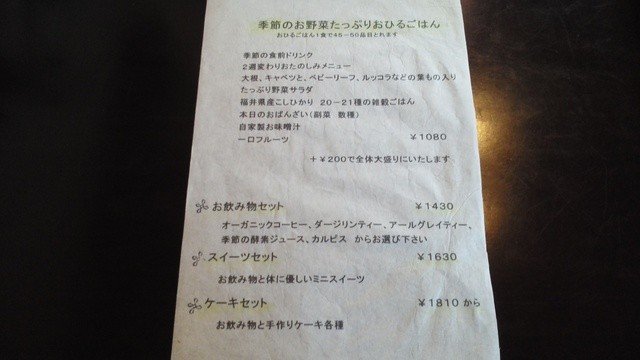 季節のお野菜たっぷりおひるごはん
おひるごはん1食で45－50品目とれます
季節の食前ドリンク
2週変わりおたのしみメニュー
大根、キャベツと、ベビーリーフ、ルッコラなどの葉もの入り
たっぷり野菜サラダ
福井県産こしひかり 20－21種の雑穀ごはん
本日のおばんざい（副菜 数種）
自家製お味噌汁
一口フルーツ ￥1080
＋￥200で全体大盛りにいたします
お飲み物セット ￥1430
オーガニックコーヒー、ダージリンティー、アールグレイティー、
季節の酵素ジュース、カルピス からお選び下さい
スイーツセット ￥1630
お飲み物と体に優しいミニスイーツ
ケーキセット ￥1810 から
お飲み物と手作りケーキ各種